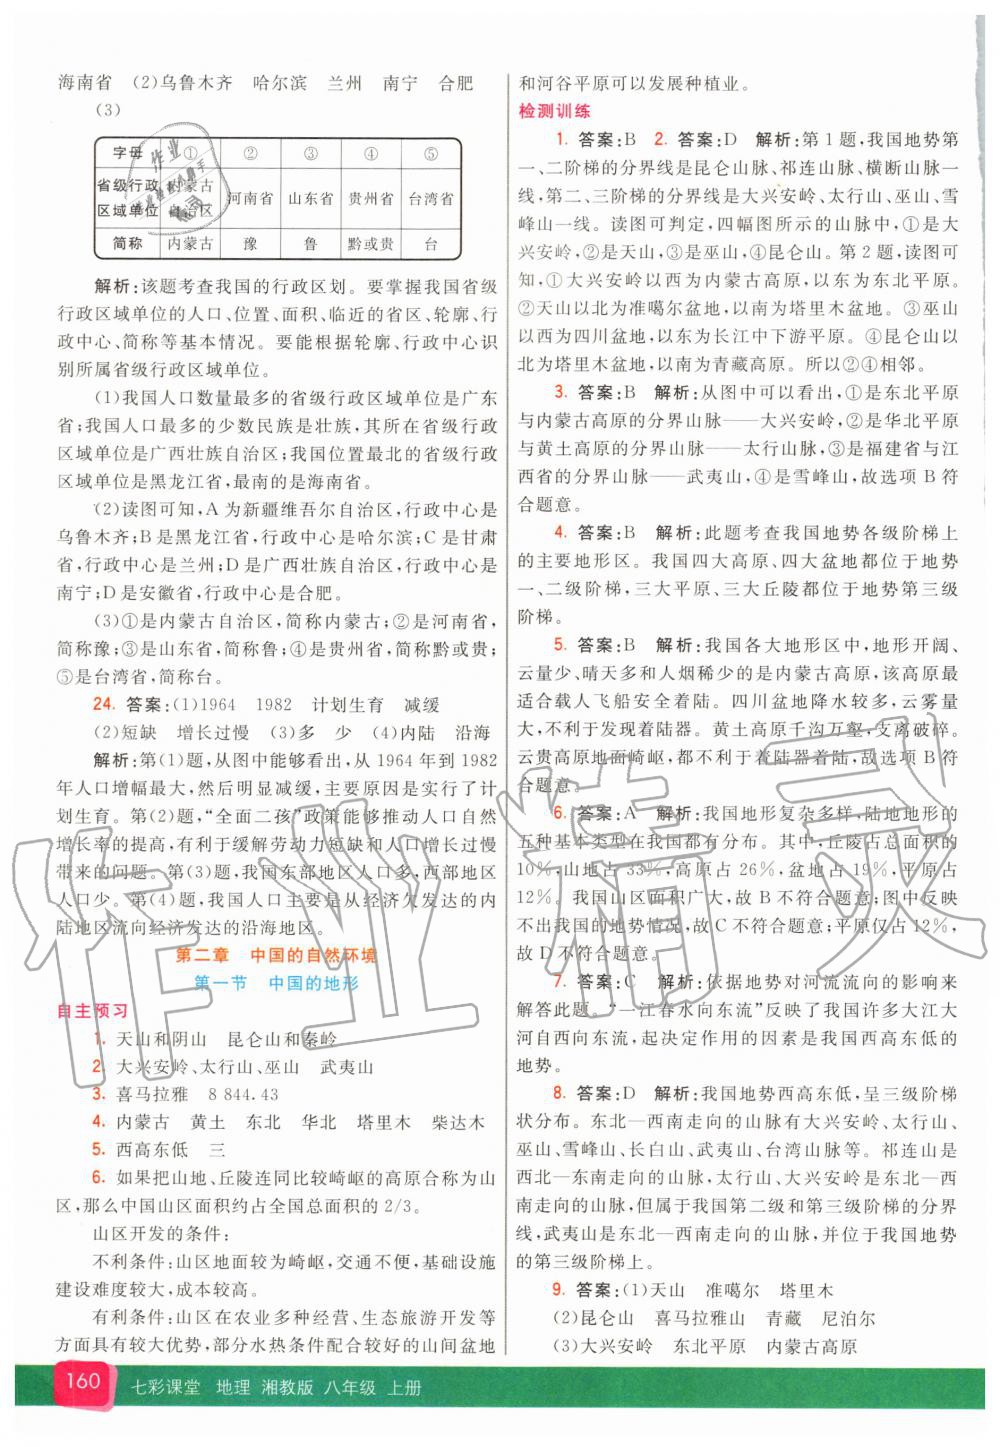 海南省 (2)乌鲁木齐 哈尔滨 兰州 南宁 合肥
(3)
字母 ① ② ③ ④ ⑤
省级行政区域单位 内蒙古自治区 河南省 山东省 贵州省 台湾省
简称 内蒙古 豫 鲁 黔或贵 台
解析:该题考查我国的行政区划。要掌握我国省级
行政区域单位的人口、位置、面积、临近的省区、轮廓、行
政中心、简称等基本情况。要能根据轮廓、行政中心识
别所属省级行政区域单位。
(1)我国人口数量最多的省级行政区域单位是广东
省;我国人口最多的少数民族是壮族,其所在省级行政
区域单位是广西壮族自治区;我国位置最北的省级行政
区域单位是黑龙江省,最南的是海南省。
(2)读图可知,A为新疆维吾尔自治区,行政中心是
乌鲁木齐;B是黑龙江省,行政中心是哈尔滨;C是甘肃
省,行政中心是兰州;D是广西壮族自治区,行政中心是
南宁;D是安徽省,行政中心是合肥。
(3)①是内蒙古自治区,简称内蒙古;②是河南省,
简称豫;③是山东省,简称鲁;④是贵州省,简称黔或贵;
⑤是台湾省,简称台。
24. 答案:(1)1964 1982 计划生育 减缓
(2)短缺 增长过慢 (3)多 少 (4)内陆 沿海
解析:第(1)题,从图中能够看出,从1964年到1982
年人口增幅最大,然后明显减缓,主要原因是实行了计
划生育。第(2)题,“全面二孩”政策能够推动人口自然
增长率的提高,有利于缓解劳动力短缺和人口增长过慢
带来的问题。第(3)题,我国东部地区人口多,西部地区
人口少。第(4)题,我国人口主要是从经济欠发达的内
陆地区流向经济发达的沿海地区。
第二章 中国的自然环境
第一节 中国的地形
自主预习
1. 天山和阴山 昆仑山和秦岭
2. 大兴安岭、太行山、巫山 武夷山
3. 喜马拉雅 8 844.43
4. 内蒙古 黄土 东北 华北 塔里木 柴达木
5. 西高东低 三
6. 如果把山地、丘陵连同比较崎岖的高原合称为山
区,那么中国山区面积约占全国总面积的2/3。
山区开发的条件:
不利条件:山区地面较为崎岖,交通不便,基础设施
建设难度较大,成本较高。
有利条件:山区在农业多种经营、生态旅游开发等
方面具有较大优势,部分水热条件配合较好的山间盆地
和河谷平原可以发展种植业。
检测训练
1. 答案:B 2. 答案:D 解析:第1题,我国地势第
一、二阶梯的分界线是昆仑山脉、祁连山脉、横断山脉一
线。第二、三阶梯的分界线是大兴安岭、太行山、巫山、雪
峰山一线。读图可判定,四幅图所示的山脉中,①是大兴
安岭,②是天山,③是巫山,④是昆仑山。第2题,读图可
知,①大兴安岭以西为内蒙古高原,以东为东北平原。
②天山以北为准噶尔盆地,以南为塔里木盆地。③巫山
以西为四川盆地,以东为长江中下游平原。④昆仑山以
北为塔里木盆地,以南为青藏高原。所以②④相邻。
3. 答案:B 解析:从图中可以看出,①是东北平原
与内蒙古高原的分界山脉——大兴安岭,②是华北平原
与黄土高原的分界山脉——太行山脉,③是福建省与江
西省的分界山脉——武夷山,④是雪峰山,故选项B符
合题意。
4. 答案:B 解析:此题考查我国地势各级阶梯上
的主要地形区。我国四大高原、四大盆地都位于地势
一、二级阶梯,三大平原、三大丘陵都位于地势第三级
阶梯。
5. 答案:B 解析:我国各大地形区中,地形开阔、
云量少、晴天多和人烟稀少的是内蒙古高原,该高原最适
合载人飞船安全着陆。四川盆地降水较多,云雾量
大,不利于发现着陆器。黄土高原千沟万壑,支离破碎。
云贵高原地面崎岖,都不利于着陆器着陆。故选项B符
合题意。
6. 答案:A 解析:我国地形复杂多样,陆地地形的
五种基本类型在我国都有分布。其中,丘陵占总面积的
10%,山地占33%,高原占26%,盆地占19%,平原占
12%。我国山区面积广大,故B不符合题意;图中反映
不出我国的地势情况,故C不符合题意;平原仅占12%,
故D不符合题意。
7. 答案:C 解析:依据地势对河流流向的影响来
解答此题。“一江春水向东流”反映了我国许多大江大
河自西向东流,起决定作用的因素是我国西高东低的
地势。
8. 答案:D 解析:我国地势西高东低,呈三级阶梯
状分布。东北—西南走向的山脉有大兴安岭、太行山、
巫山、雪峰山、长白山、武夷山、台湾山脉等。祁连山是
西北—东南走向的山脉,太行山、大兴安岭是东北—西
南走向的山脉,但属于我国第二级和第三级阶梯的分界
线,武夷山是东北—西南走向的山脉,并位于我国地势
的第三级阶梯上。
9. 答案:(1)天山 准噶尔 塔里木
(2)昆仑山 喜马拉雅山 青藏 尼泊尔
(3)大兴安岭 东北平原 内蒙古高原
160 七彩课堂 地理 湘教版 八年级 上册
作业精灵